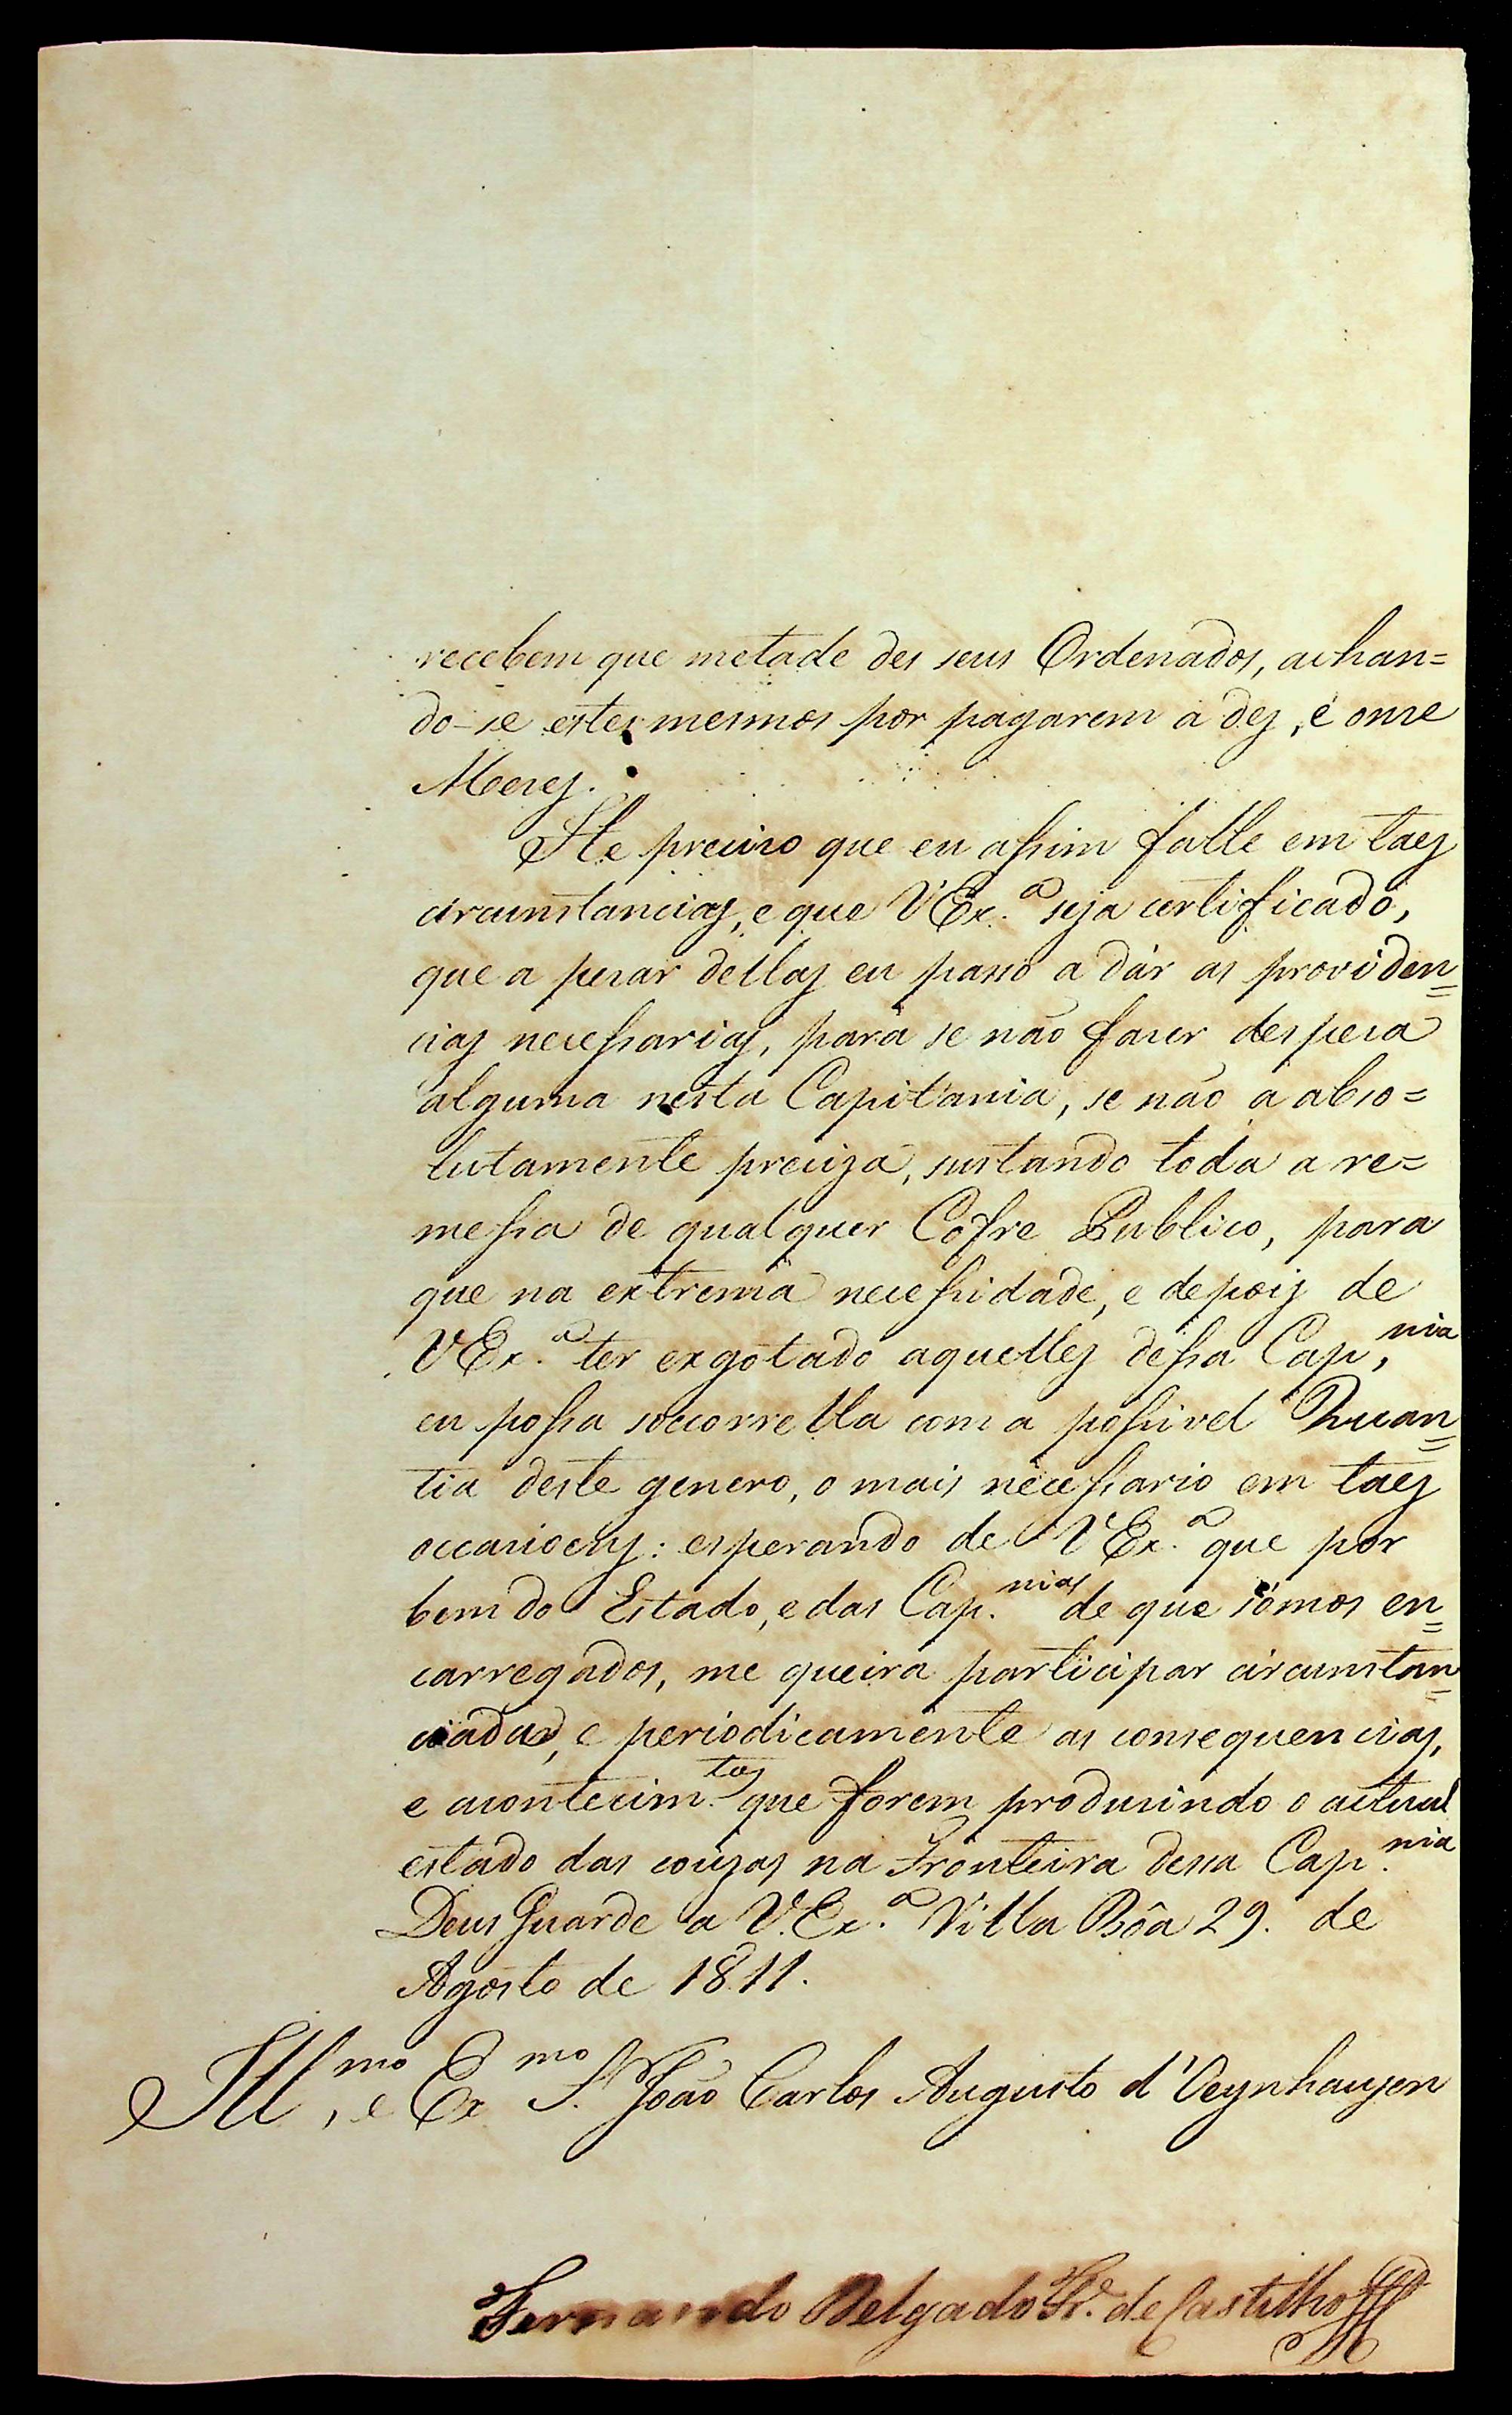 recebem que metade dos seus Ordenados, achan=
do-se estes mesmos por pagarem a dez, e onze
Mezes.
He preciso que eu assim falle em taes
circumstancias, e que VEx.ª seja certificado,
que a pezar dellas eu passo a dár as providen=
cias necessarias, para se não fazer despeza
alguma nesta Capitania, se não a abso=
lutamente preciza, sustando toda a re=
messa de qualquer Cofre Publico, para
que na extrema necessidade, e depois de
VEx.ª ter exgotado aquelles dessa Cap.nia
eu possa soccorrella com a possivel Quan=
tia deste genero, o mais necessario em taes
occasioens: esperando de VEx.ª que por
bem do Estado, e das Cap.nias de que sômos en=
carregados, me queira participar circumstan=
ciada, e periodicamente as consequencias,
e acontecim.tos que forem produzindo o actual
estado das couzas na Fronteira dessa Cap.nia
Deus Guarde a V.Ex.ª Villa Bôa 29. de
Agosto de 1811.
Ill.mo, e Ex.mo S.r João Carlos Augusto d'Oeynhausen
Fernando Delgado Fr.e de Castilho